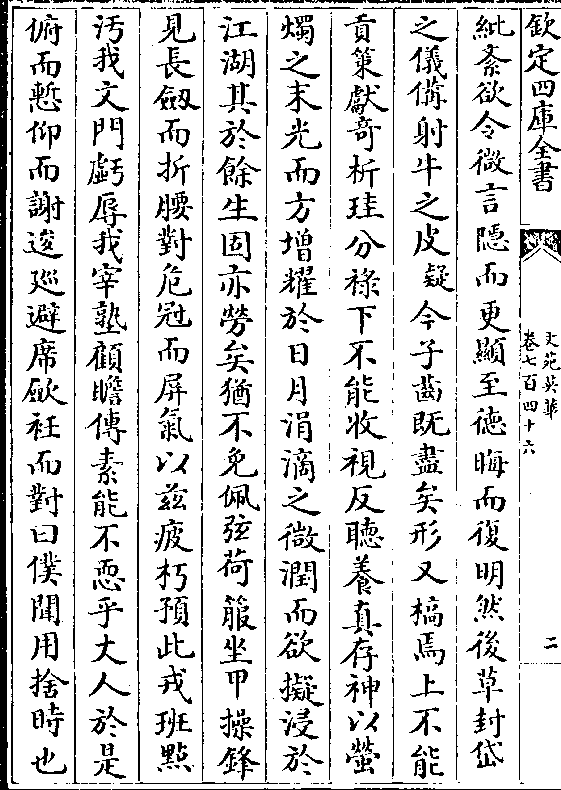 欽定四庫全書
文苑英華
卷七百四十六
二
紕紊欲令微言隱而更顯至德晦而復明然後草封岱
之儀備射牛之皮疑今子齒既盡矣形又槁焉上不能
貢策獻奇析珪分祿下不能收視反聽養真存神以螢
燭之末光而方增耀於日月涓滴之微潤而欲擬浸於
江湖其於餘生固亦勞矣猶不免佩弦荷箙坐甲操鋒
見長劔而折腰對危冠而屏氣以茲疲朽預此戎班點
汚我文門虧辱我宰塾顧瞻傳素能不恧乎丈人於是
俯而慙仰而謝逡廵避席歛衽而對曰僕聞用捨時也